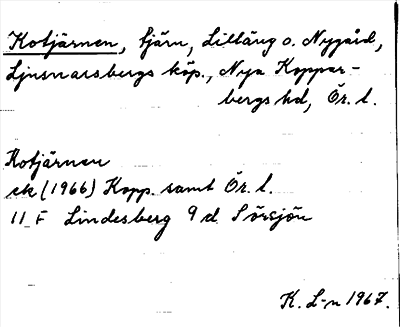 Kotjärnen, tjärn, Lilläng o. Nygård,
Ljusnarsbergs köp., Nya Koppar-
bergs hd, Ör. l.
Kotjärnen
ek (1966) Kopp. samt Ör. l.
11 F Lindesberg 9 d Sörsjön
K. L-n 1967.